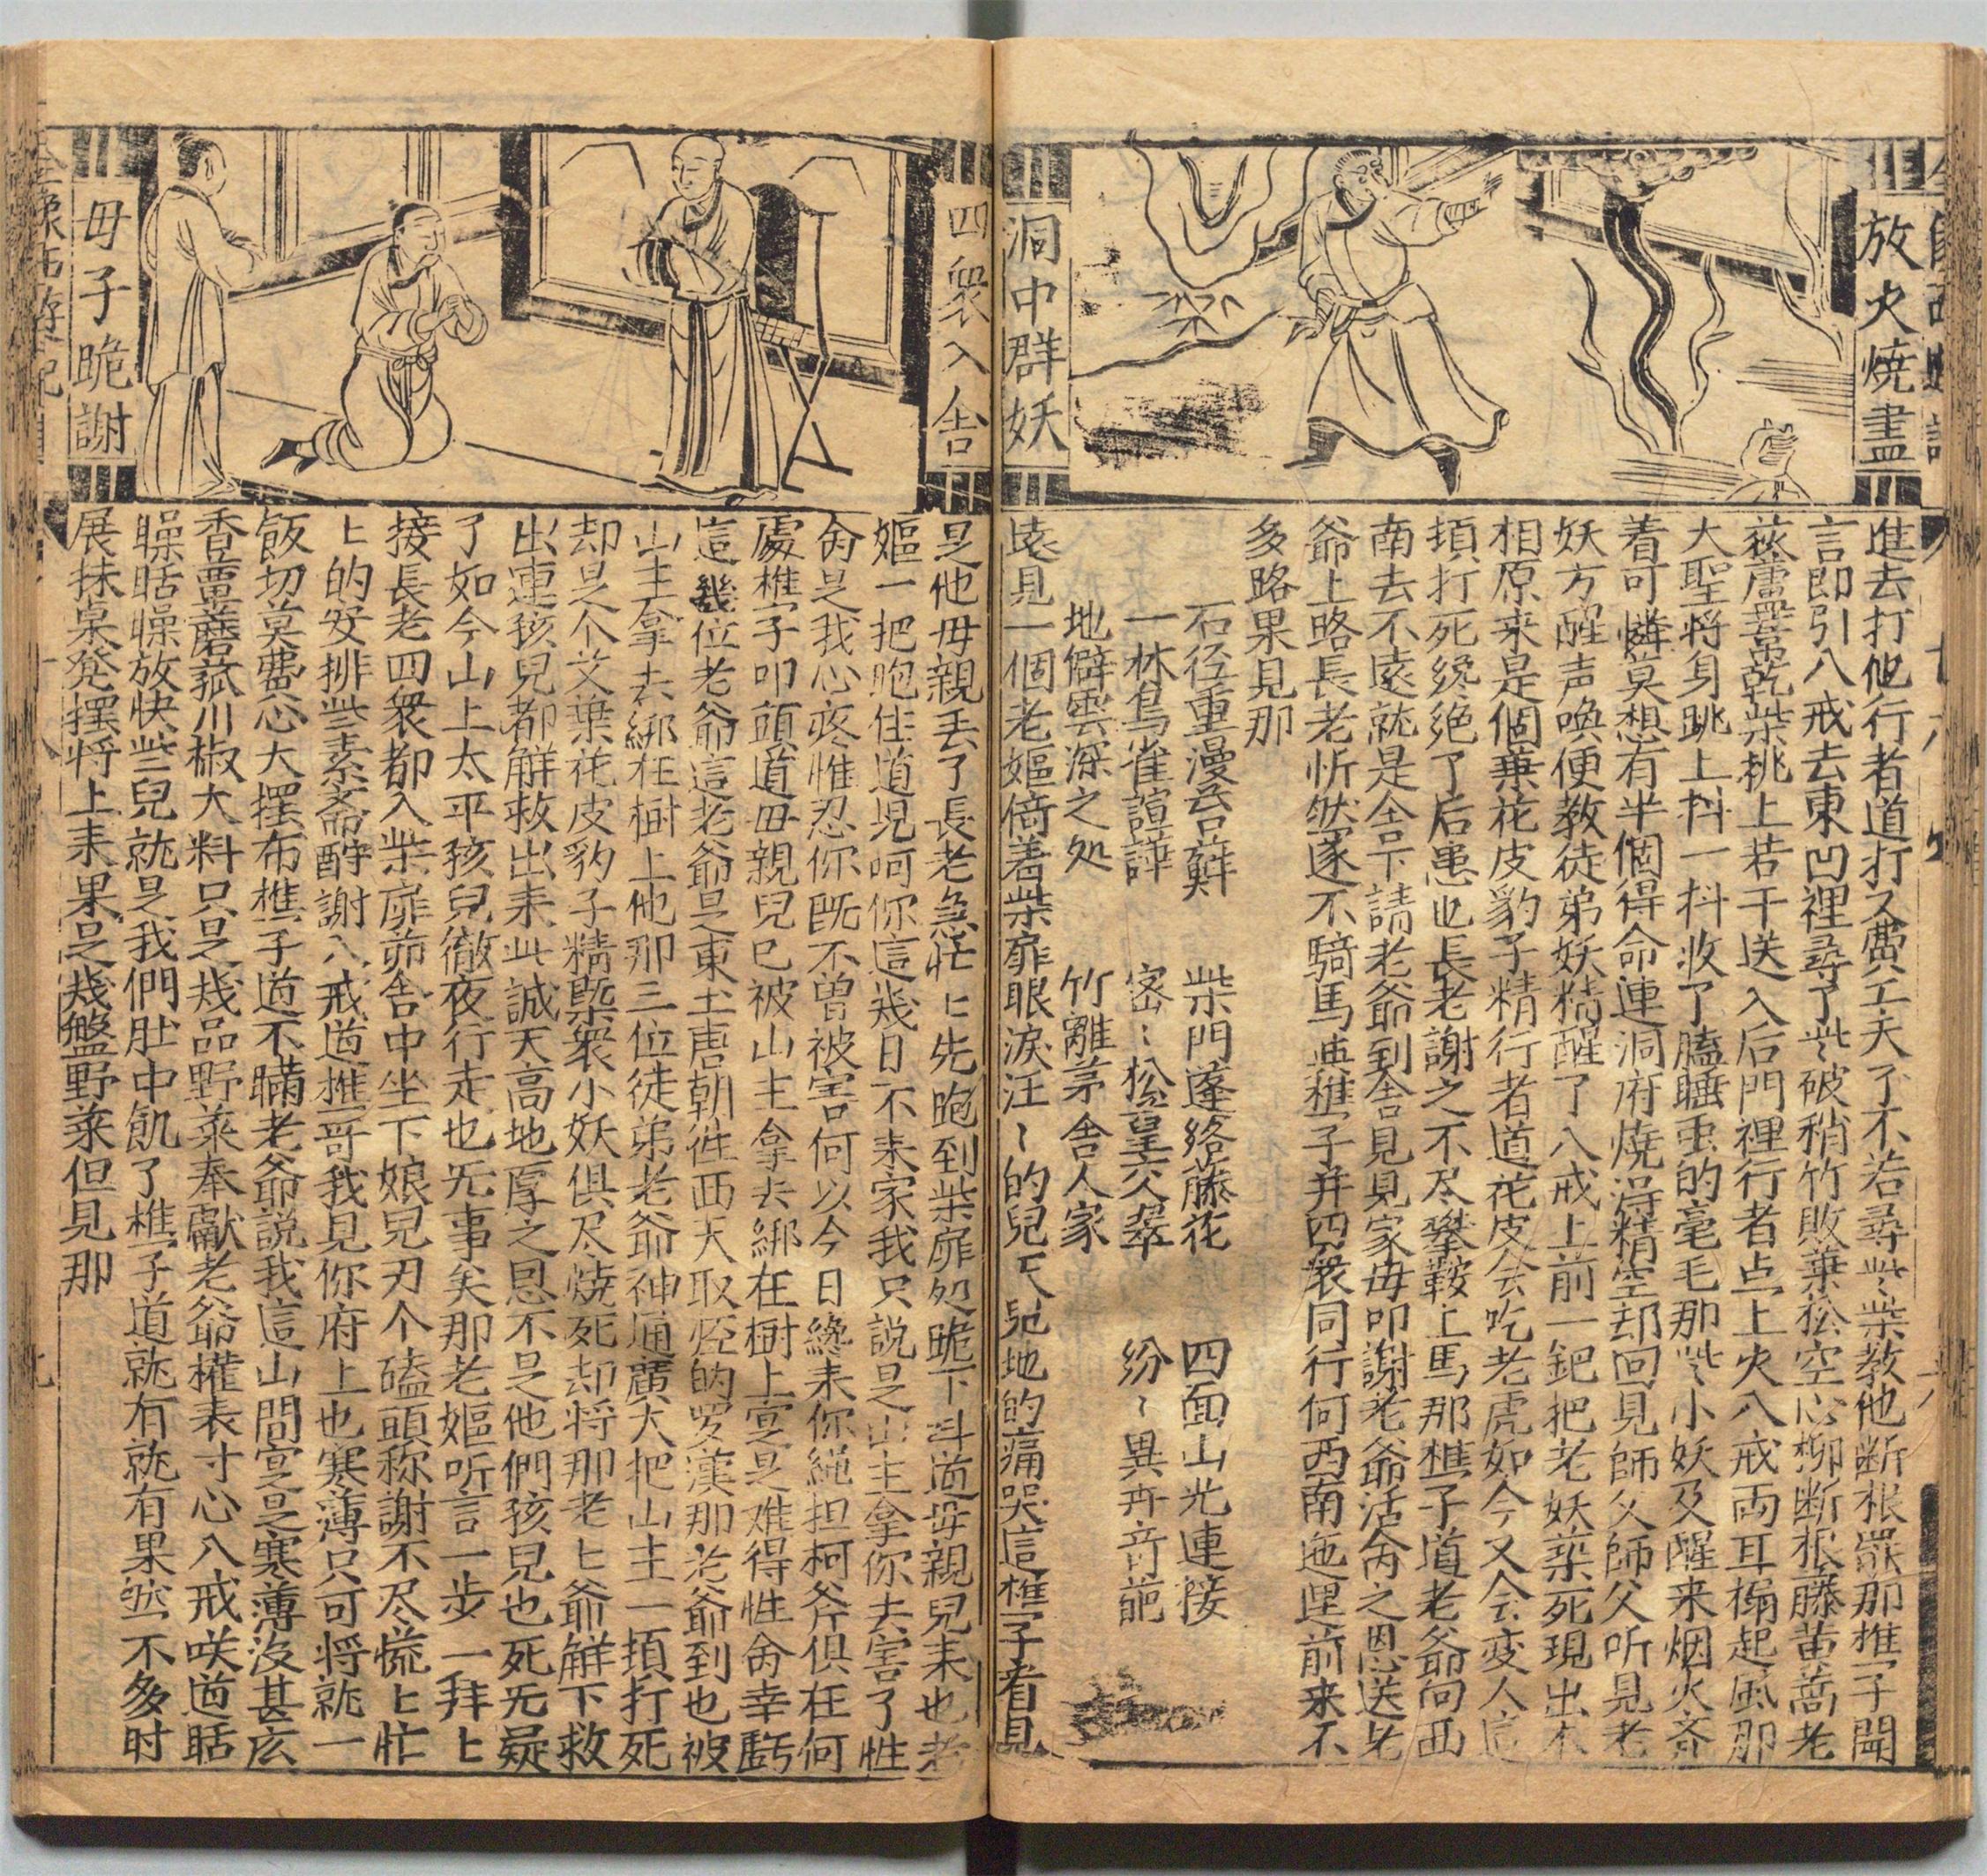 放火燒盡
洞中群妖
進去打他行者道打又費工夫了不若尋些柴教他断根罷那樵子聞
言即引八戒去東凹裡尋了些破稍竹敗葉松空心柳断根藤黄蒿老
荻蘆葦乾柴挑上若干送入后門裡行者点上火八戒両耳搧起風那
大聖将身跳上抖一抖收了瞌睡虫的毫毛那些小妖及醒来烟火齐
着可憐莫想有半個得命連洞府燒得精空却回見師父師父听見老
妖方醒声唤便教徒弟妖精醒了八戒上前一鈀把老妖築死現出本
相原来是個葉花皮豹子精行者道花皮会吃老虎如今又会变人這
頓打死纔絶了后患也長老謝之不尽攀鞍上馬那樵子道老爺向西
南去不遠就是舍下請老爺到舍見見家母叩謝老爺活命之恩送老
爺上路長老忻然遂不騎馬與樵子并四衆同行何西南迤逞前来不
多路果見那
石径重漫苔蘚　柴門蓬絡藤花　四面山光連接
一林鳥雀諠譁　密〻松篁交翠　紛〻異卉奇葩
地僻雲深之处　竹離茅舍人家
遠見一個老嫗倚着柴扉眼淚汪〻的兒天兒地的痛哭這樵子看見
四衆入舍
母子跪謝
是他母親丢了長老急忙〻先跑到柴扉处跪下叫道母親兒来也老
嫗一把抱住道児呵你這幾日不来家我只説是山主拿你去害了性
命是我心疼惟忍你既不曾被害何以今日纔来你繩担柯斧俱在何
處樵子叩頭道母親兒已被山主拿去綁在樹上寔是难得性命幸虧
這幾位老爺這老爺是東土唐朝徃西天取經的罗漢那老爺到也被
山主拿去綁在樹上他那三位徒弟老爺神通廣大把山主一頓打死
却是个艾葉花皮豹子精槩衆小妖俱尽燒死却将那老〻爺解下救
出連孩兒都解救出来此誠天高地厚之恩不是他們孩兒也死无疑
了如今山上太平孩兒徹夜行走也无事矣那老嫗听言一步一拜上
接長老四衆都入柴扉茆舍中坐下娘兒刃个磕頭称謝不尽慌〻忙
〻的安排些素斋酧謝八戒道樵哥我見你府上也寒薄只可将就一
飯切莫費心大擺布樵子道不瞞老爺説我這山間寔是寒薄沒甚庅
香蕈蘑菰川椒大料只是幾品野菜奉獻老爺權表寸心八戒咲道聒
噪聒噪放快些兒就是我們肚中飢了樵子道就有就有果然不多时
展抹桌凳擺将上来果是幾盤野菜但見那